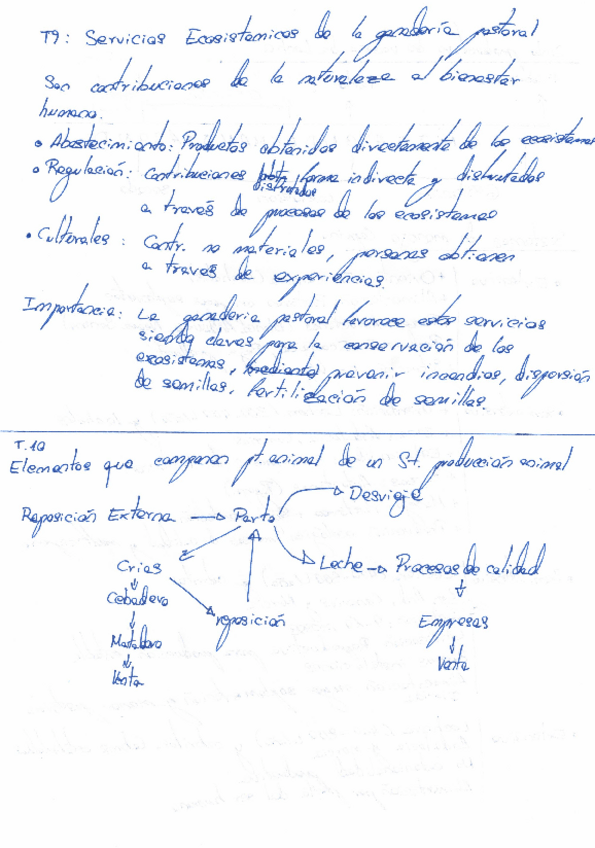 T9: Servicios Ecosistemicos de la ganadería pastoral
Son contribuciones de la naturaleza al bienestar
humano.
• Abastecimiento: Productos obtenidos directamente de los ecosistemas
• Regulación: Contribuciones forma indirecta y disfrutados
a través de procesos de los ecosistemas
• Culturales: Contr. no materiales, personas obtienen
a traves de experiencias.
Importancia: La ganaderia pastoral favorece estos servicios
siendo claves para la conservación de los
ecosistemas, mediante prevenir incendios, dispersión
de semillas, fertilización de semillas.
T.10
Elementos que componen pt. animal de un St. producción animal
Desvieje
Reposición Externa → Parto
Crias
Leche → Procesos de calidad
Cebadero
reposición
Empresas
Matadero
Venta
Venta